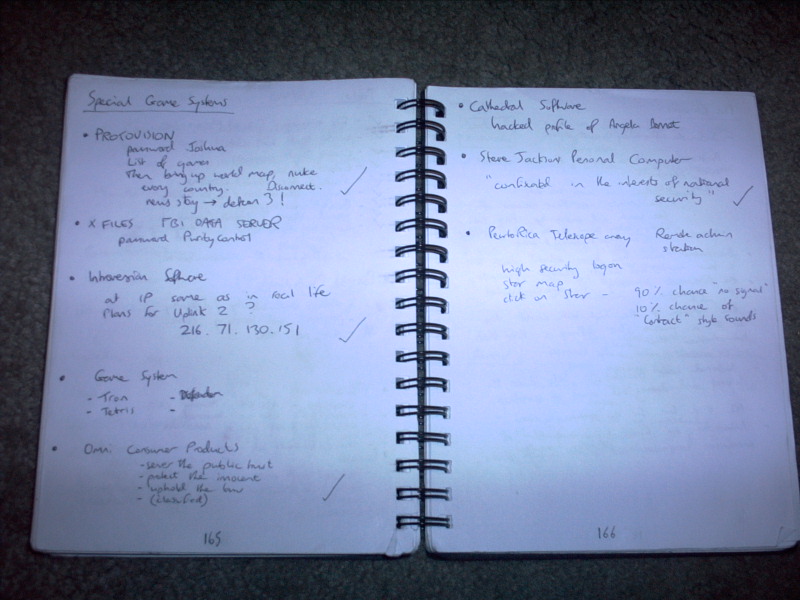 Special Game Systems
• PROTOVISION
password Joshua
List of games
Then bring up world map, nuke
every country. Disconnect.
news story → defcon 3!
• X FILES FBI DATA SERVER
password PurityControl
• Introversion Software
at IP same as in real life
Plans for Uplink 2?
216.71.130.151
• Game System
- Tron - Defender
- Tetris -
• Omni Consumer Products
- serve the public trust
- protect the innocent
- uphold the law
- (classified)
165
• Cathedral Software
hacked profile of Angela Bennet
• Steve Jackson Personal Computer
"confiscated in the interests of national
security"
• Puerto Rica Telescope array Remote admin
station
high security logon
star map
click on star - 90% chance "no signal"
10% chance of
"Contact" style sounds
166